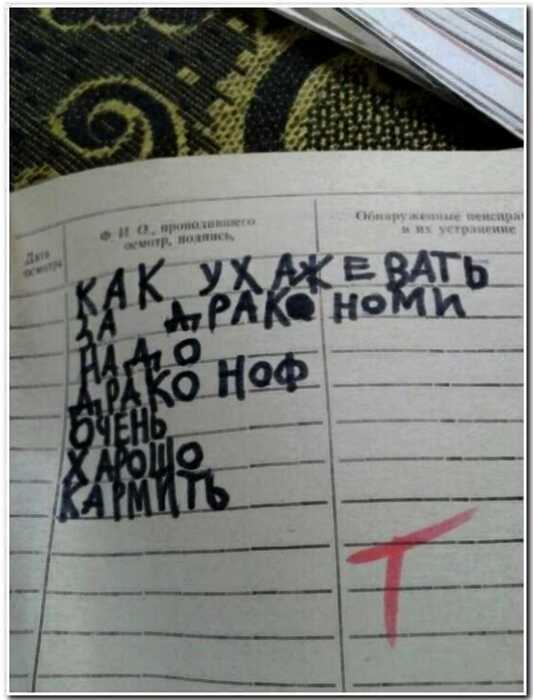 Дата осмотра
Ф. И. О., проводившего осмотр, подпись,
Обнаруженные неисправ
и их устранение
КАК УХАЖЕВАТЬ
ЗА ДРАКОНОМИ
НАДО
ДРАКОНОФ
ОЧЕНЬ
ХАРОШО
КАРМИТЬ
Т